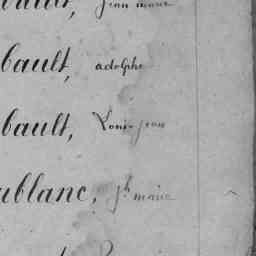 Jean marie
bault, adolphe
bault, Louis jean
ublanc, Jh marie